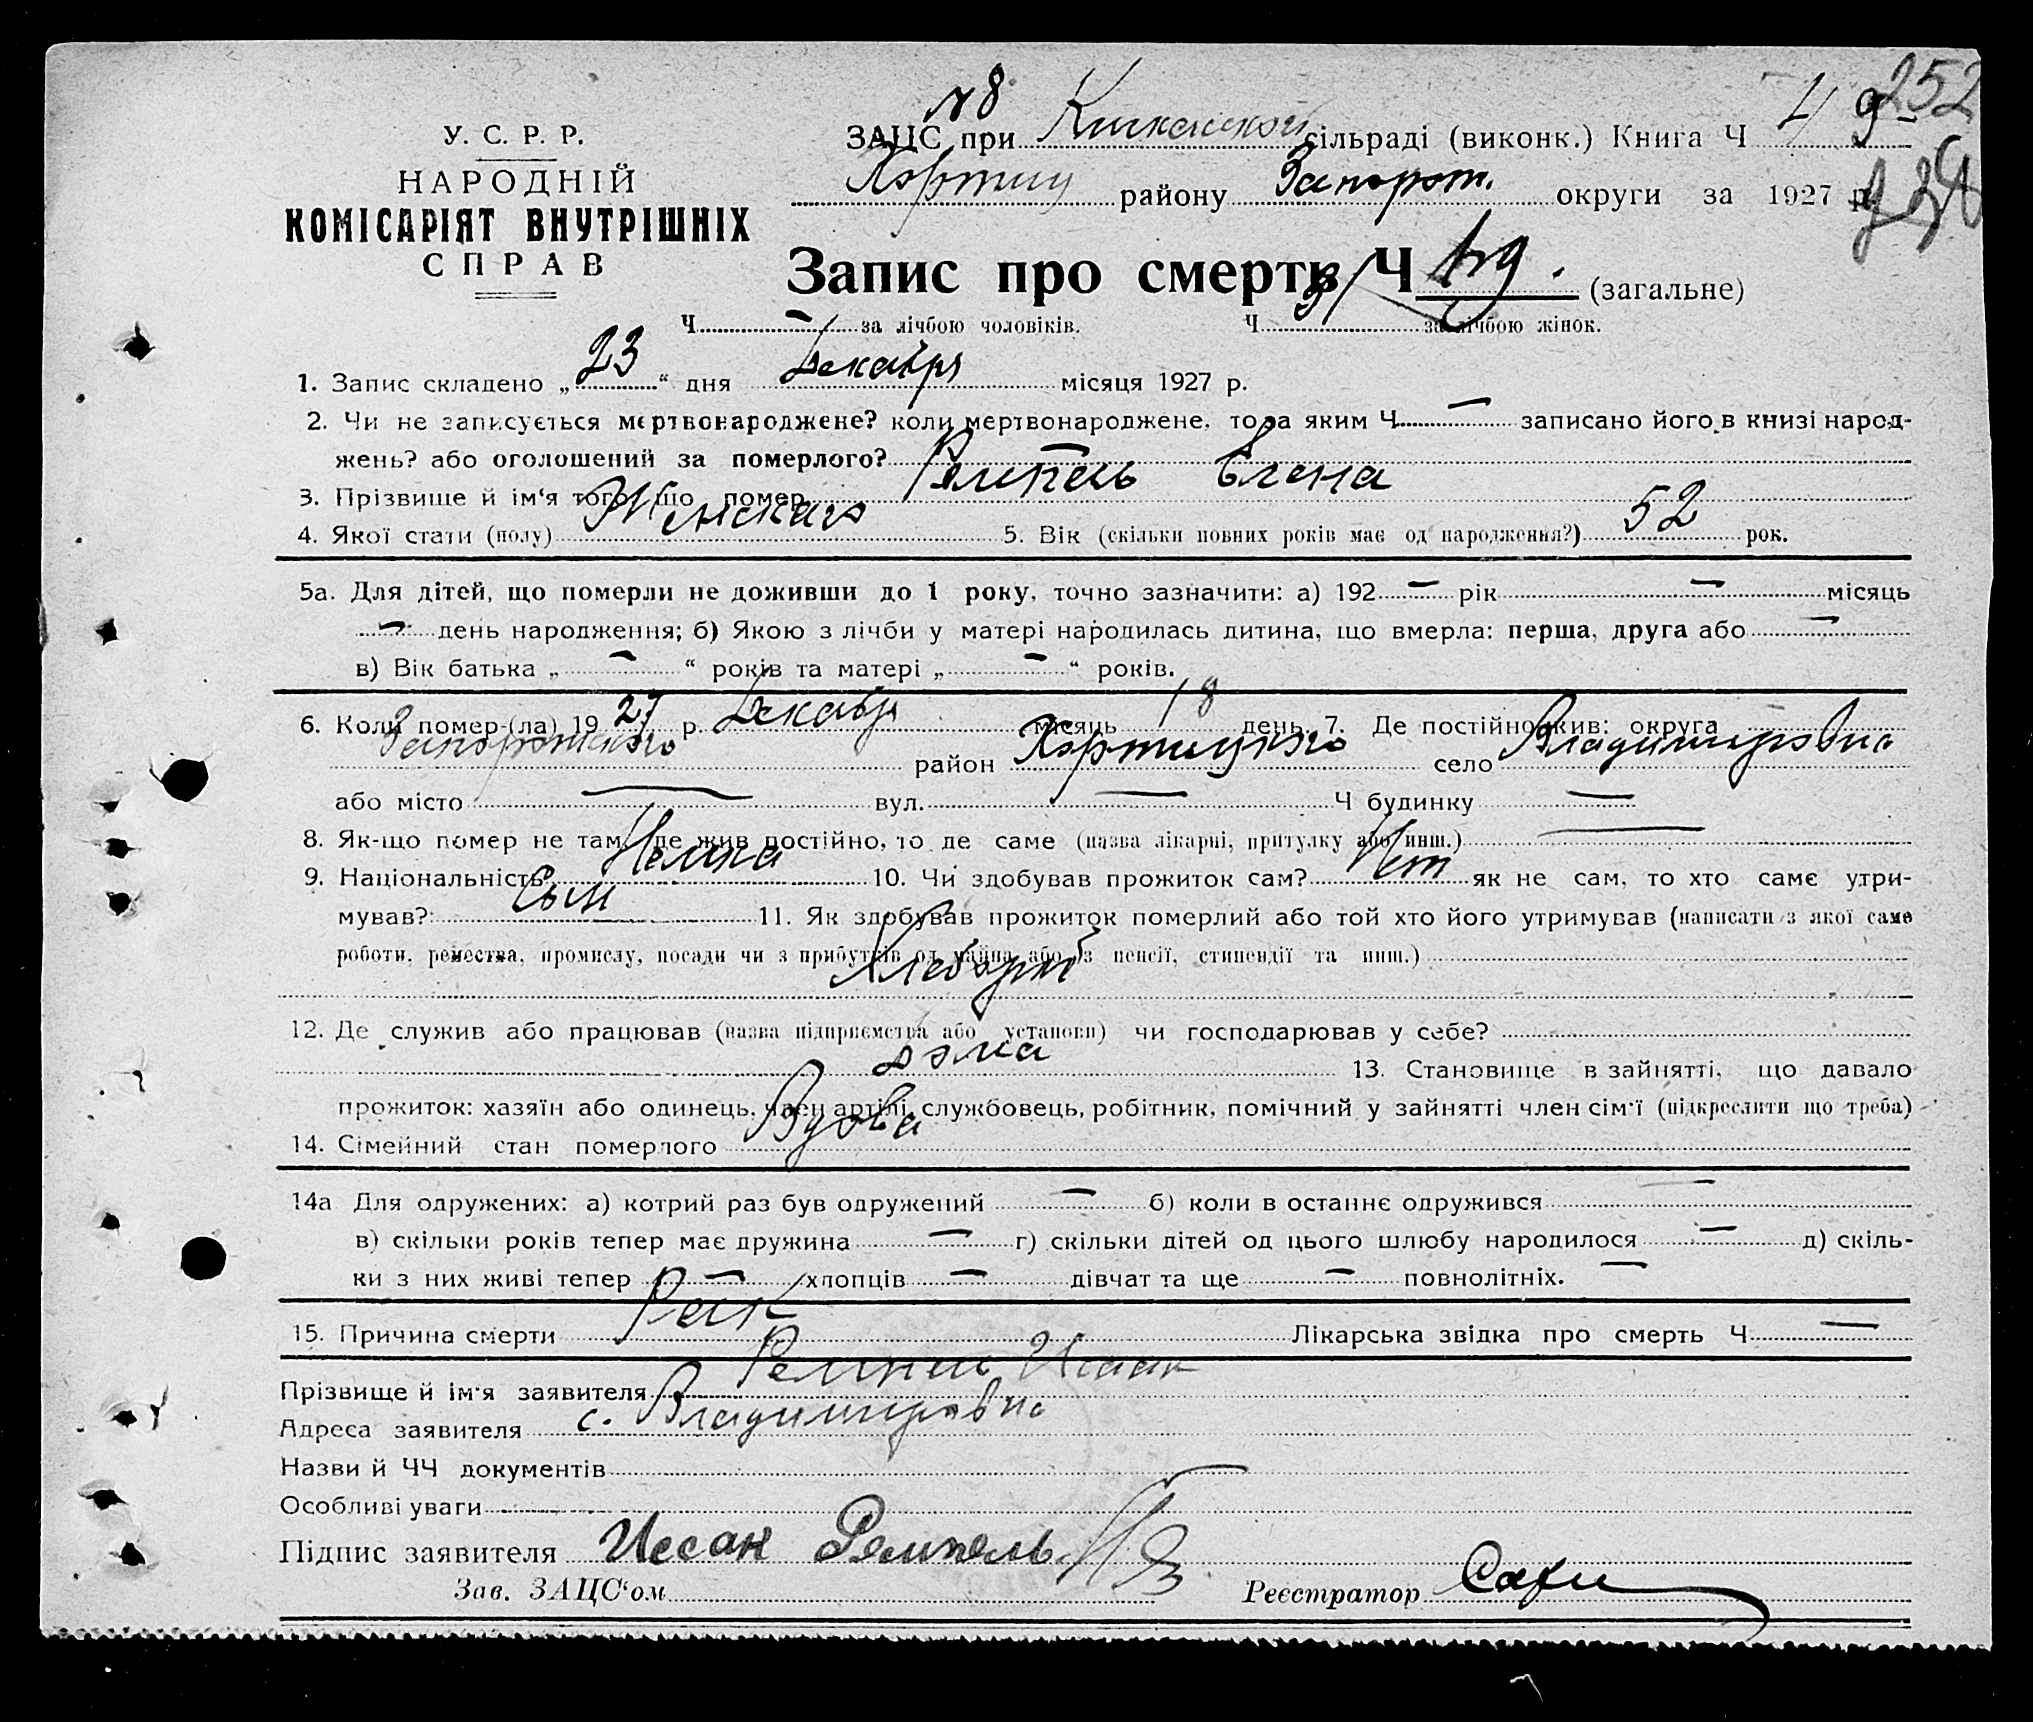 252
№ 8
У. С. Р. Р.
ЗАЦС при Кичкасской сільраді (виконк.) Книга Ч 4
НАРОДНІЙ
Хортиц району Запорож. округи за 1927 р.
КОМІСАРІЯТ ВНУТРІШНІХ
СПРАВ
Запис про смерть Ч (загальне)
Ч – за лічбою чоловіків. Ч 31 за лічбою жінок.
1. Запис складено „ 23 “ дня Декабря місяця 1927 р.
2. Чи не записується мертвонароджене? коли мертвонароджене, то за яким Ч – записано його в книзі народ-
жень? або оголошений за померлого? –
3. Прізвище й ім‘я того, що помер Ремпель Елена
4. Якої стати (полу) Женскаго 5. Вік (скільки повних років має од народження?) 52 рок.
5а. Для дітей, що померли не доживши до 1 року, точно зазначити: а) 192 – рік – місяць
– день народження; б) Якою з лічби у матері народилась дитина, що вмерла: перша, друга або –
в) Вік батька „ – “ років та матері „ – “ років.
6. Коли помер-(ла) 19 27 р. Декабря місяць 18 день. 7. Де постійно жив: округа
Запорожского район Хортицкого село Владимировка
або місто — вул. — Ч будинку —
8. Як-що помер не там, де жив постійно, то де саме (назва лікарні, притулку або инш.) —
9. Національність Немка 10. Чи здобував прожиток сам? Нет як не сам, то хто саме утри-
мував? Сын 11. Як здобував прожиток померлий або той хто його утримував (написати з якої саме
роботи, ремества, промислу, посади чи з прибутків од майна або з пенсії, стипендії та инш.)
Хлебороб
12. Де служив або працював (назва підприємства або установи) чи господарював у себе?
дома 13. Становище в зайнятті, що давало
прожиток: хазяїн або одинець, член артілі, службовець, робітник, помічний у зайнятті член сім'ї (підкреслити що треба)
14. Сімейний стан померлого Вдова
14а Для одружених: а) котрий раз був одружений – б) коли в останнє одружився –
в) скільки років тепер має дружина – г) скільки дітей од цього шлюбу народилося – д) скіль-
ки з них живі тепер – хлопців – дівчат та ще – повнолітніх. –
15. Причина смерти Рак Лікарська звідка про смерть Ч –
Прізвище й ім'я заявителя Ремпель Исаак
Адреса заявителя с. Владимировка
Назви й ЧЧ документів —
Особливі уваги
Підпис заявителя Иссак Ремпель
Зав. ЗАЦС‘ом Реєстратор